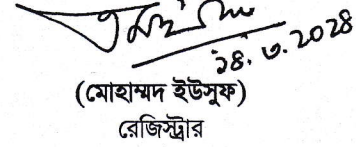 ১৪.৩.২০২৪
(মোহাম্মদ ইউসুফ)
রেজিস্ট্রার